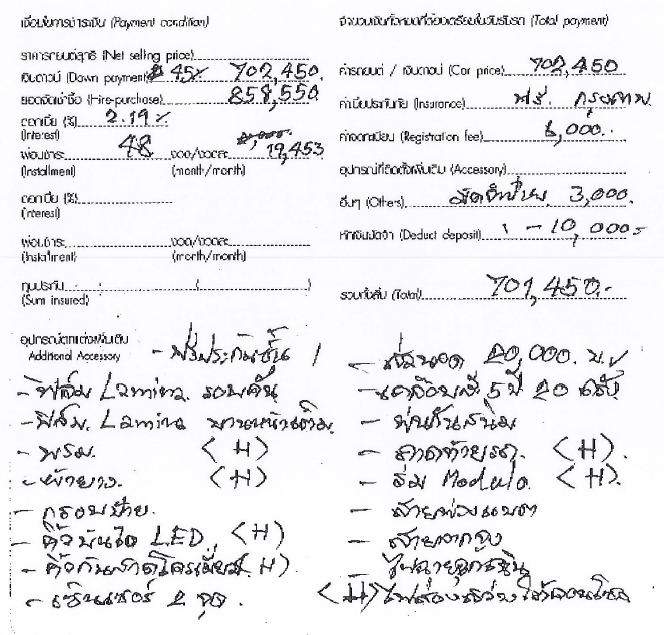 เงื่อนไขการชำระเงิน (Payment condition)
ราคารถยนต์สุทธิ (Net selling price)
เงินดาวน์ (Down payment) 45% 702,450.
ยอดจัดเช่าซื้อ (Hire-purchase) 858,550
ดอกเบี้ย (%) 2.19%
(Interest)
ผ่อนชำระ 48 งวด/งวดละ 19,453
(Installment) (month/month)
ดอกเบี้ย (%)
(Interest)
ผ่อนชำระ งวด/งวดละ
(Installment) (month/month)
ทุนประกัน ( )
(Sum insured)
จำนวนเงินทั้งหมดที่ต้องเตรียมในวันรับรถ (Total payment)
ค่ารถยนต์ / เงินดาวน์ (Car price) 702,450
ค่าเบี้ยประกันภัย (Insurance) ฟรี กรุงเทพ
ค่าจดทะเบียน (Registration fee) 6,000.-
อุปกรณ์ที่ติดตั้งเพิ่มเติม (Accessory)
อื่นๆ (Others) 3,000.
หักเงินมัดจำ (Deduct deposit) -10,000-
รวมทั้งสิ้น (Total) 701,450.-
อุปกรณ์ตกแต่งเพิ่มเติม
Additional Accessory
- ฟรีประกันชั้น 1
- ฟิล์ม Lamina รอบคัน
- ฟิล์ม. Lamina บานหน้าเต็ม.
- พรม. (H)
- ผ้ายาง. (H)
- กรอบป้าย.
- คิ้วบันได LED (H)
- คิ้วกันสาดโครเมี่ยม (H)
- เซ็นเซอร์ 2 จุด.
- ส่วนลด 20,000. บ.
- เคลือบสี 5 ปี 20 ครั้ง
- พ่นกันสนิม
- ถาดท้ายรถ. (H).
- ร่ม Modulo. (H).
- สายพ่วงแบต
- สายลากจูง
ไฟฉายฉุกเฉิน
(H) ไฟส่องสว่างใต้คอนโซล